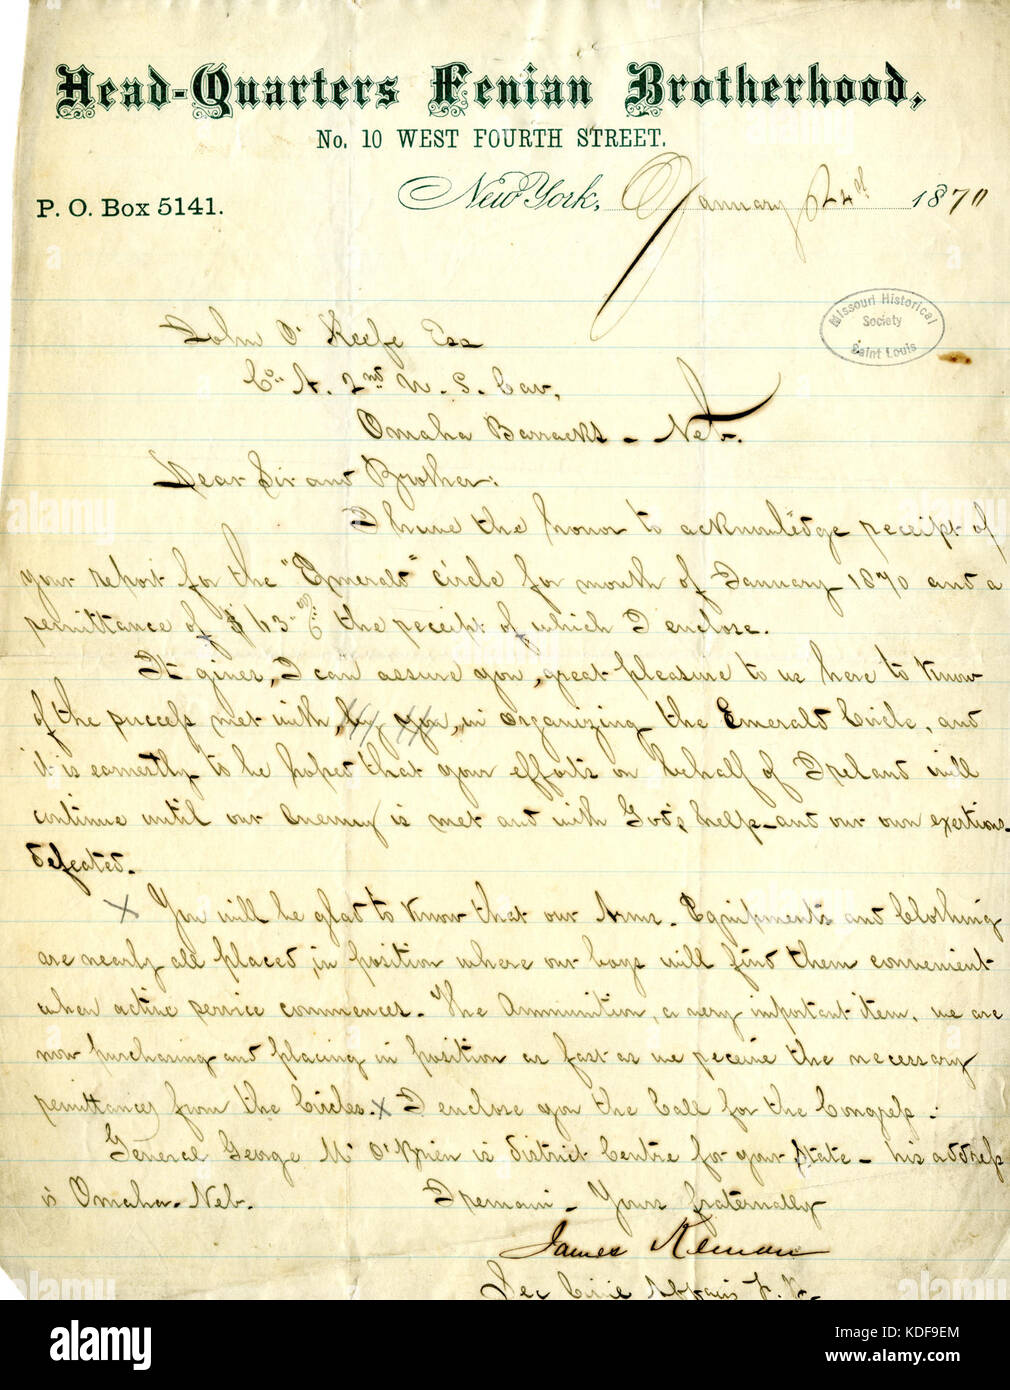 Head-Quarters Fenian Brotherhood,
No. 10 WEST FOURTH STREET.
P. O. Box 5141.
New York, January 24th 1870
Missouri Historical
Society
Saint Louis
John O'Keefe Esq
Co. A. 2nd U. S. Cav,
Omaha Barracks - Neb.
Dear Sir and Brother:
I have the honor to acknowledge receipt of
your report for the "Emerald" circle for month of January 1870 and a
remittance of $ 43.00 the receipt of which I enclose.
It gives, I can assure you, great pleasure to us here to know
of the success met with, by you, in organizing the Emerald Circle, and
it is earnestly to be hoped that your efforts on behalf of Ireland will
continue until our Enemy is met and with God's help - and our own exertions -
defeated.
x You will be glad to know that our Arms - Equipments and Clothing
are nearly all placed in position where our boys will find them convenient
when active service commences. The Ammunition, a very important item, we are
now purchasing and placing in position as fast as we receive the necessary
remittances from the Circles. x I enclose you the Call for the Congress.
General George M. O'Brien is district Centre for your State - his address
is Omaha - Neb. I remain - Yours fraternally
James Keenan
Sec Civil Affairs F. B.
alamy
Image ID: KDF9EM
www.alamy.com